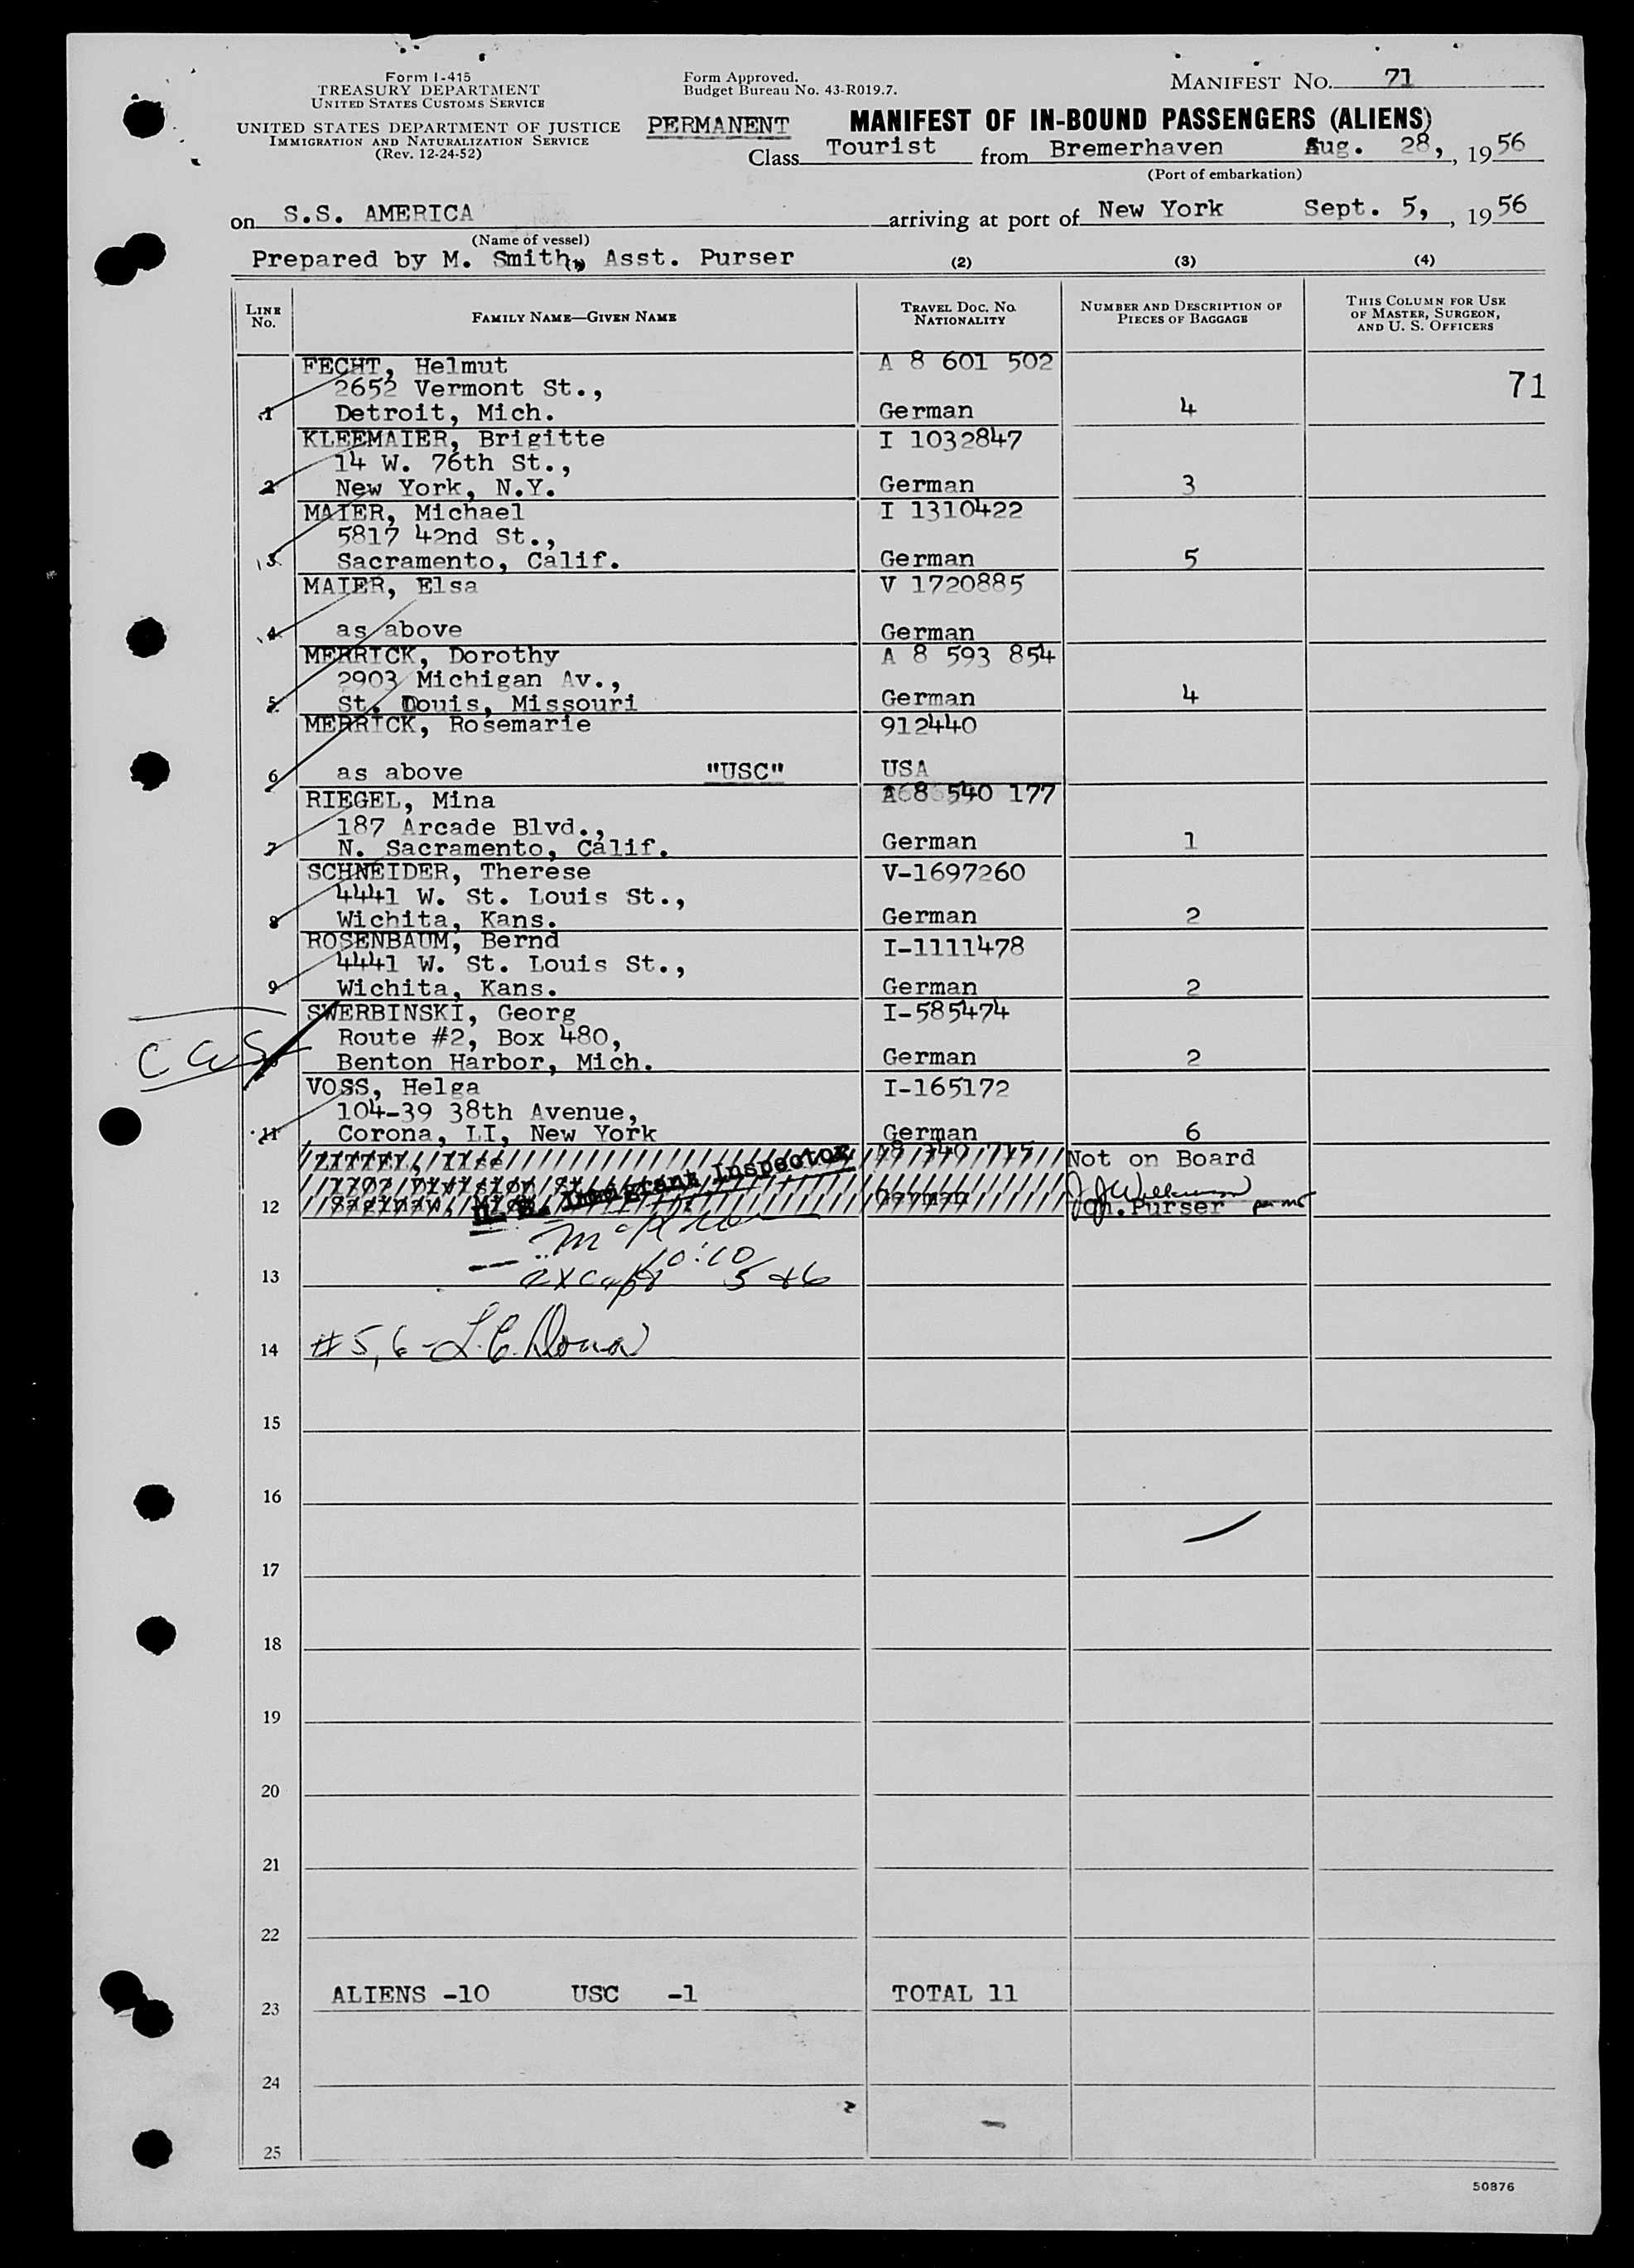 Form I-415
TREASURY DEPARTMENT
UNITED STATES CUSTOMS SERVICE
UNITED STATES DEPARTMENT OF JUSTICE
IMMIGRATION AND NATURALIZATION SERVICE
(Rev. 12-24-52)
Form Approved.
Budget Bureau No. 43-R019.7.
PERMANENT
MANIFEST No. 71
MANIFEST OF IN-BOUND PASSENGERS (ALIENS)
Class Tourist from Bremerhaven Aug. 28, , 1956
(Port of embarkation)
on S.S. AMERICA arriving at port of New York Sept. 5, , 1956
(Name of vessel)
Prepared by M. Smith, Asst. Purser (2) (3) (4)
LINE No. FAMILY NAME—GIVEN NAME TRAVEL DOC. NO. NATIONALITY NUMBER AND DESCRIPTION OF PIECES OF BAGGAGE THIS COLUMN FOR USE OF MASTER, SURGEON, AND U. S. OFFICERS
FECHT, Helmut A 8 601 502
2652 Vermont St., 71
1 Detroit, Mich. German 4
KLEEMAIER, Brigitte I 1032847
14 W. 76th St.,
2 New York, N.Y. German 3
MAIER, Michael I 1310422
5817 42nd St.,
3 Sacramento, Calif. German 5
MAIER, Elsa V 1720885
4 as above German
MERRICK, Dorothy A 8 593 854
2903 Michigan Av.,
5 St. Douis, Missouri German 4
MERRICK, Rosemarie 912440
6 as above "USC" USA
RIEGEL, Mina A68 540 177
187 Arcade Blvd.,
7 N. Sacramento, Calif. German 1
SCHNEIDER, Therese V-1697260
4441 W. St. Louis St.,
8 Wichita, Kans. German 2
ROSENBAUM, Bernd I-1111478
4441 W. St. Louis St.,
9 Wichita, Kans. German 2
SWERBINSKI, Georg I-585474
Route #2, Box 480,
Benton Harbor, Mich. German 2
VOSS, Helga I-165172
104-39 38th Avenue,
11 Corona, LI, New York German 6
ZITTEL, Ilse Not on Board
Division St.
12 Saginaw, Mich. German Ch. Purser
U. S. Immigrant Inspector
10:10
13 except 5 & 6
14 #5,6 -
15
16
17
18
19
20
21
22
23 ALIENS -10 USC -1 TOTAL 11
24
25
50876